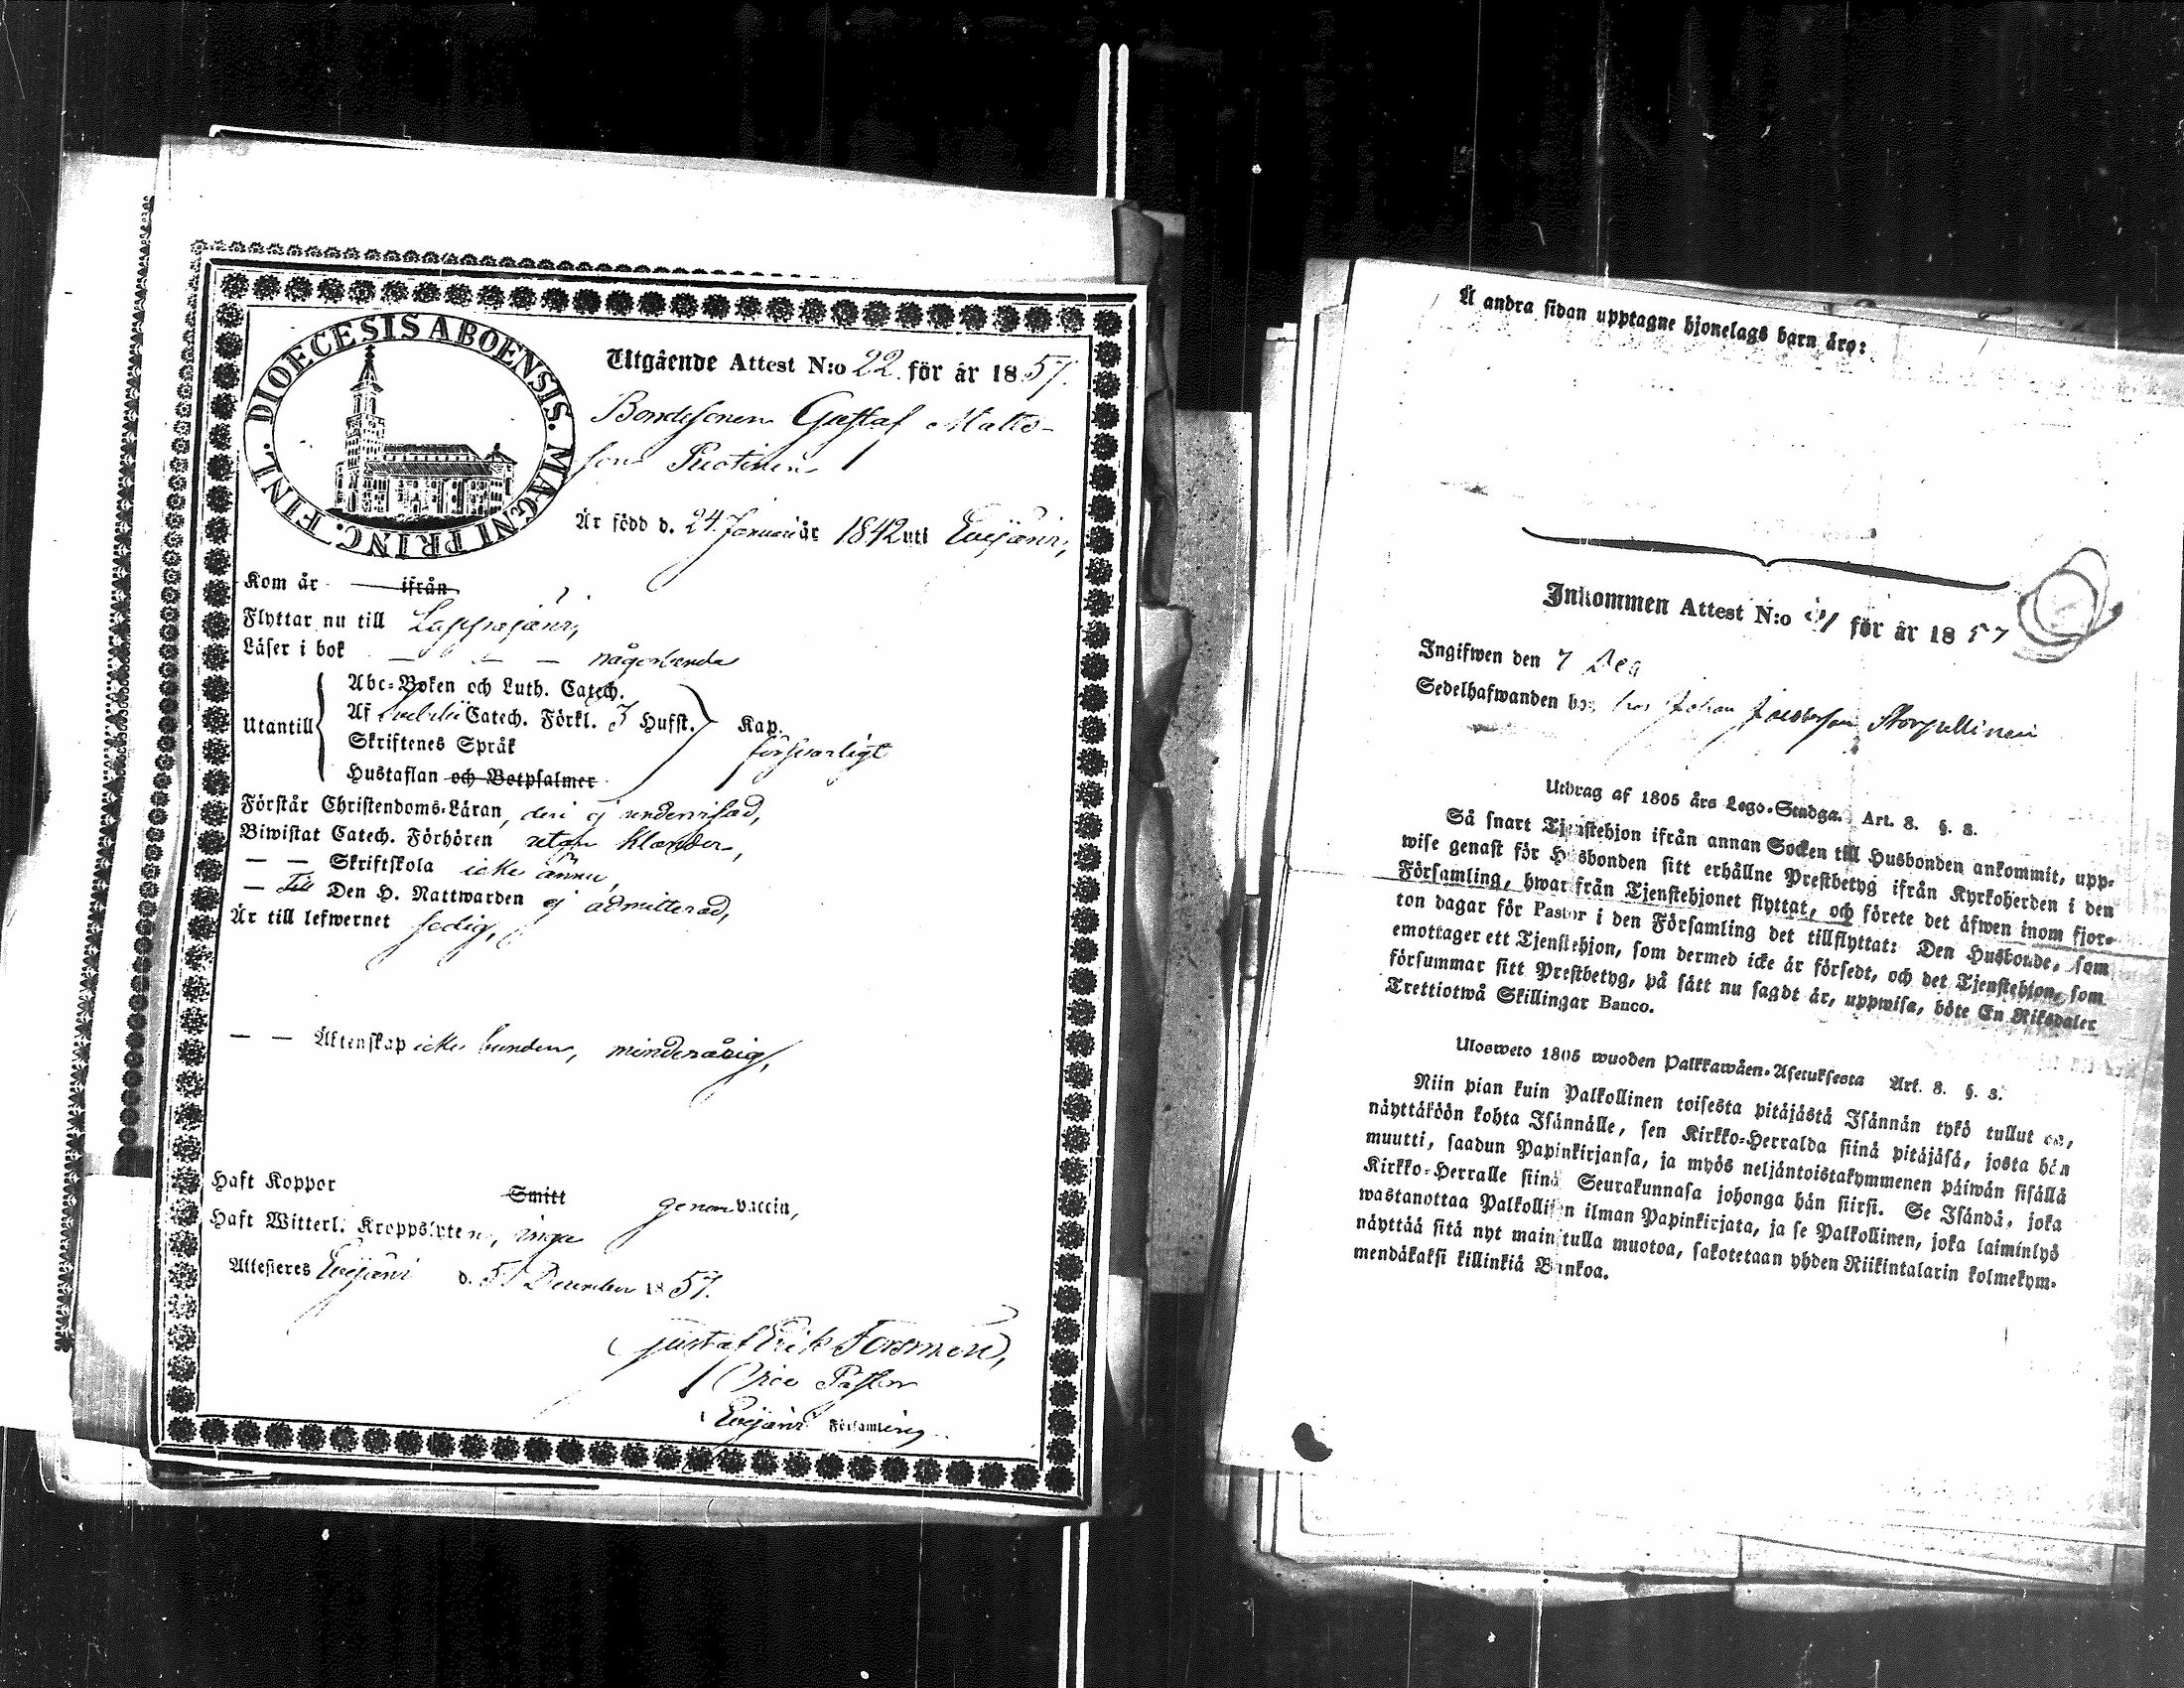 DIOECESIS ABOENSIS. MAGNI PRINC. FINL.
Utgående Attest N:o 22. för år 1857.
Bondesonen Gustaf Matts-
son
Är född d. 24 Januari år 1842 uti Evijärvi,
Kom år — ifrån
Flyttar nu till Lappajärvi,
Läser i bok — — — någorlunda
Utantill
Abc-Boken och Luth. Catech.
Af Catech. Förkl. 3 Hufst. Kap.
Skriftenes Språk försvarligt
Hustaflan och Botpsalmer
Förstår Christendoms-Läran, deri ej undervisad,
Biwistat Catech. Förhören utan klander,
— — Skriftskola icke ännu,
— till Den H. Nattwarden ej admitterad,
Är till lefwernet fredig,
— — Äktenskap icke bunden, minderårig,
Haft Koppor Smitt genom vaccin,
Haft Witterl. Kroppslyten, inga
Attesteres Evijärvi d. 5 December 1857.
Gustaf Erik Forsmén,
Vice Pastor
Evijärvi Församling.
Å andra sidan upptagne hjonelags barn äro:
Inkommen Attest N:o 21 för år 1857
Ingifwen den 7 Dec
Sedelhafwanden bor hos Johan Jacobsson Storpullinen
Utdrag af 1805 års Lego-Stadga. Art. 8. §. 3.
Så snart Tjenstehjon ifrån annan Socken till Husbonden ankommit, upp-
wise genast för Husbonden sitt erhållne Prestbetyg ifrån Kyrkoherden i den
Församling, hwar från Tjenstehjonet flyttat, och förete det äfwen inom fjor-
ton dagar för Pastor i den Församling det tillflyttat: Den Husbonde, som
emottager ett Tjenstehjon, som dermed icke är försedt, och det Tjenstehjon, som
försummar sitt Prestbetyg, på sätt nu sagdt är, uppwisa, böte En Riksdaler
Trettiotwå Skillingar Banco.
Ulosweto 1805 wuoden Palkkawäen-Asetuksesta Art. 8. §. 3.
Niin pian kuin Palkollinen toisesta pitäjästä Isännän tykö tullut on,
näyttäköön kohta Isännälle, sen Kirkko-Herralda siinä pitäjäsä, josta hän
muutti, saadun Papinkirjansa, ja myös neljäntoistakymmenen päiwän sisällä
Kirkko-Herralle siinä Seurakunnasa johonga hän siirsi. Se Isändä, joka
wastanottaa Palkollisen ilman Papinkirjata, ja se Palkollinen, joka laiminlyö
näyttää sitä nyt mainitulla muotoa, sakotetaan yhden Riikintalarin kolmekym-
mendäkaksi killinkiä Bankoa.